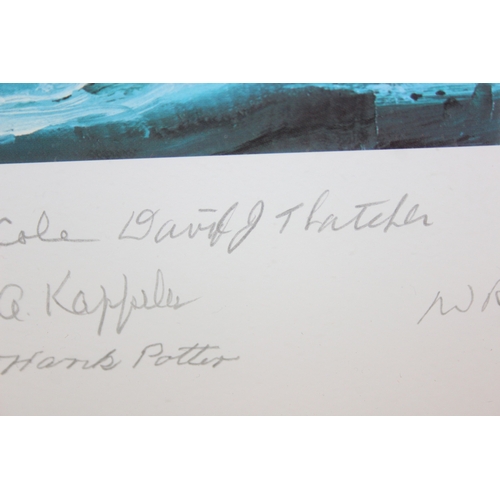 Cole David J Thatcher
A. Kappeler
Hank Potter